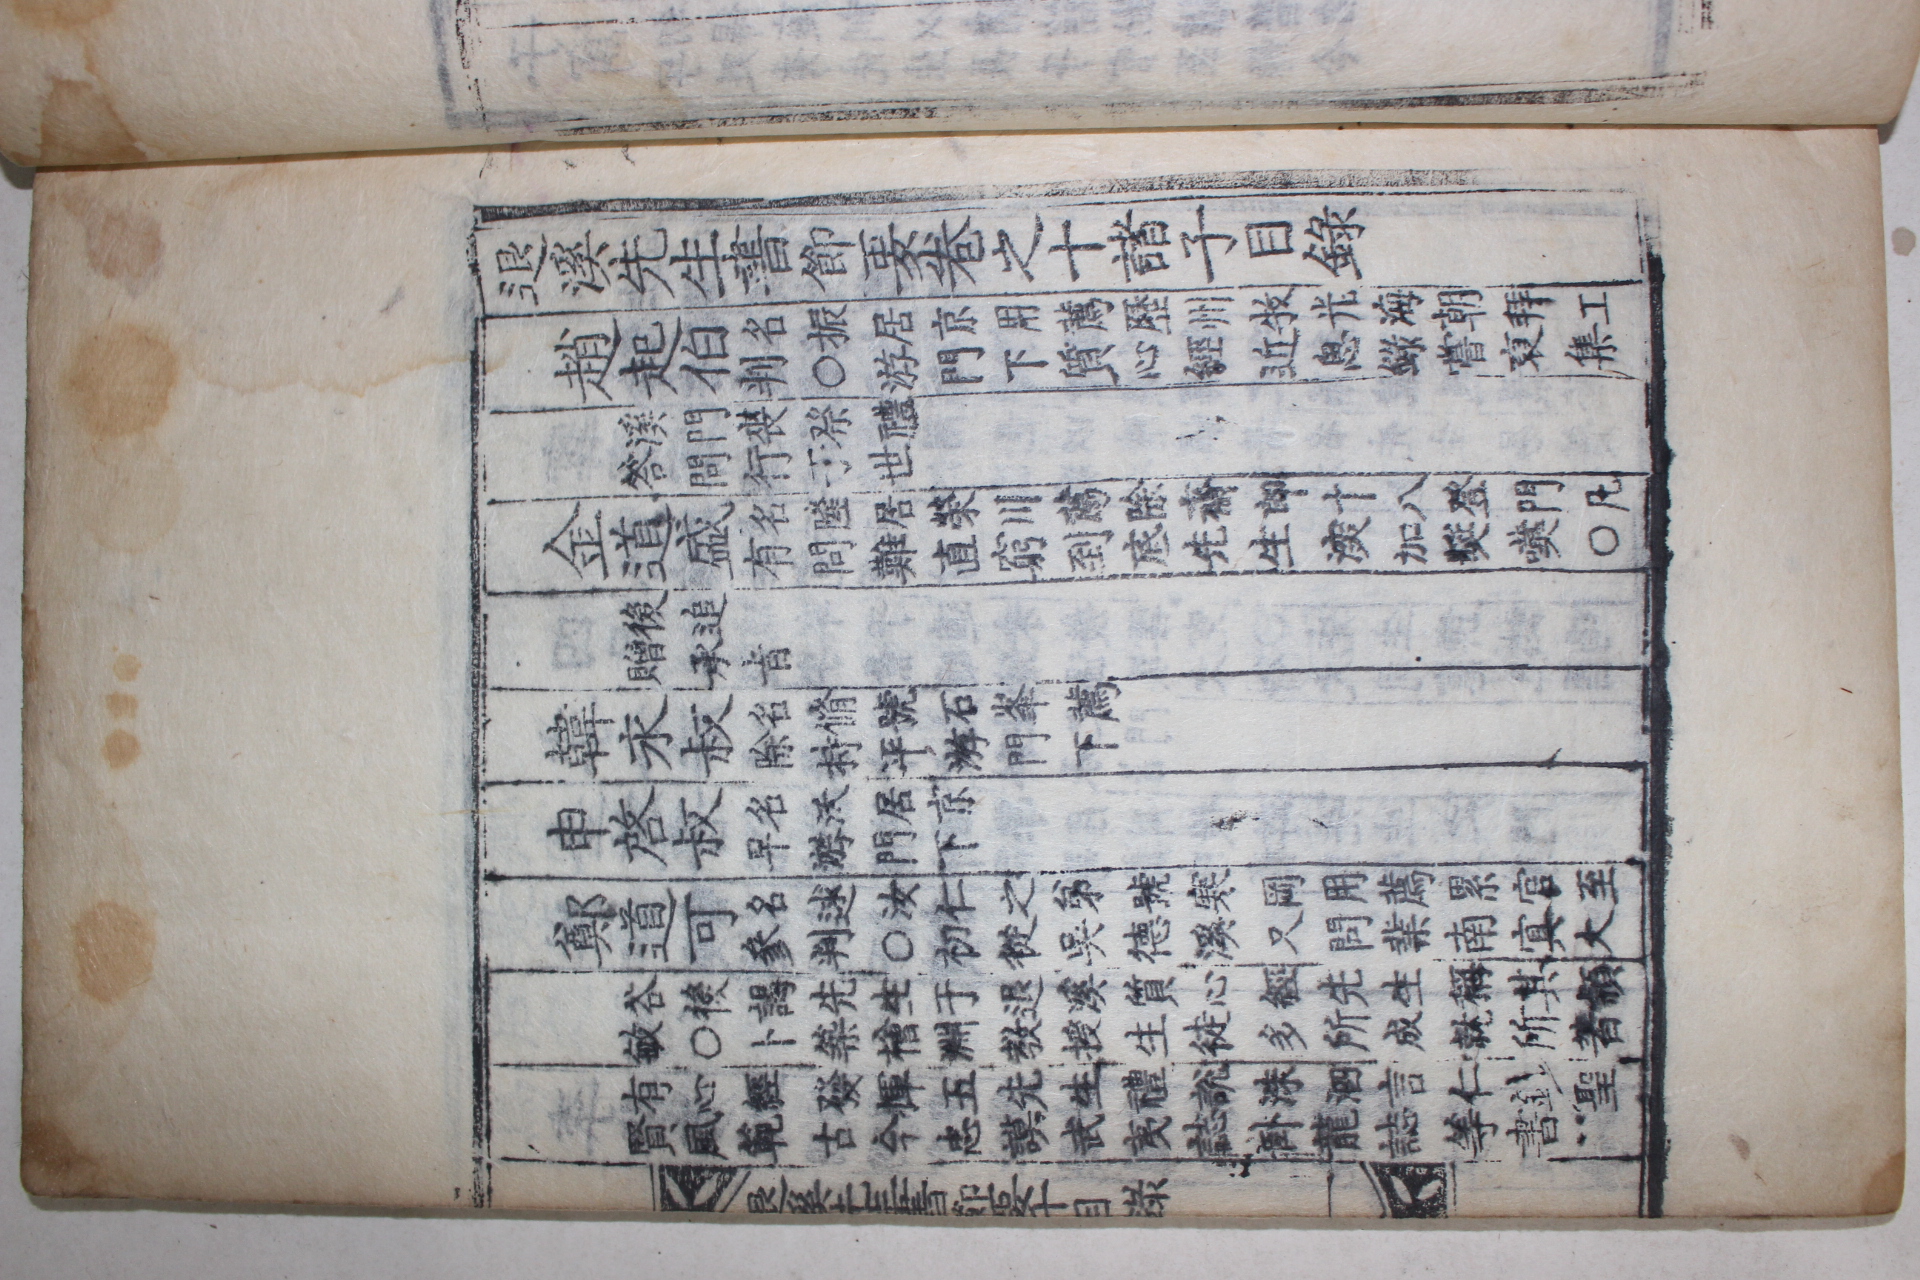 退溪先生書節要卷之十諸子目錄
趙起伯
名振居京用薦歷州牧光海朝拜工
判○游門下質心經近思錄嘗裒集
溪門喪祭禮
答問行于世
金道盛
名隆居榮川薦除齋郎十八登門凡
有問難直窮到底先生深加奬嘆○
後追
贈承旨
韓永叔
名脩號石峯薦
除持平游門下
申啓叔
名沃居京
早游門下
鄭道可
名逑汝仁之弟號寒岡用薦累官至
參判○初從吳德溪又問業南冥大
谷後謁先生于退溪質心經先生稱其穎
敏○卜築檜淵敎授生徒多所成就所著
有心經發揮五先生禮說洙泗言仁錄聖
賢風範古今忠謨武夷誌臥龍誌等書
退溪先生書節要十目錄